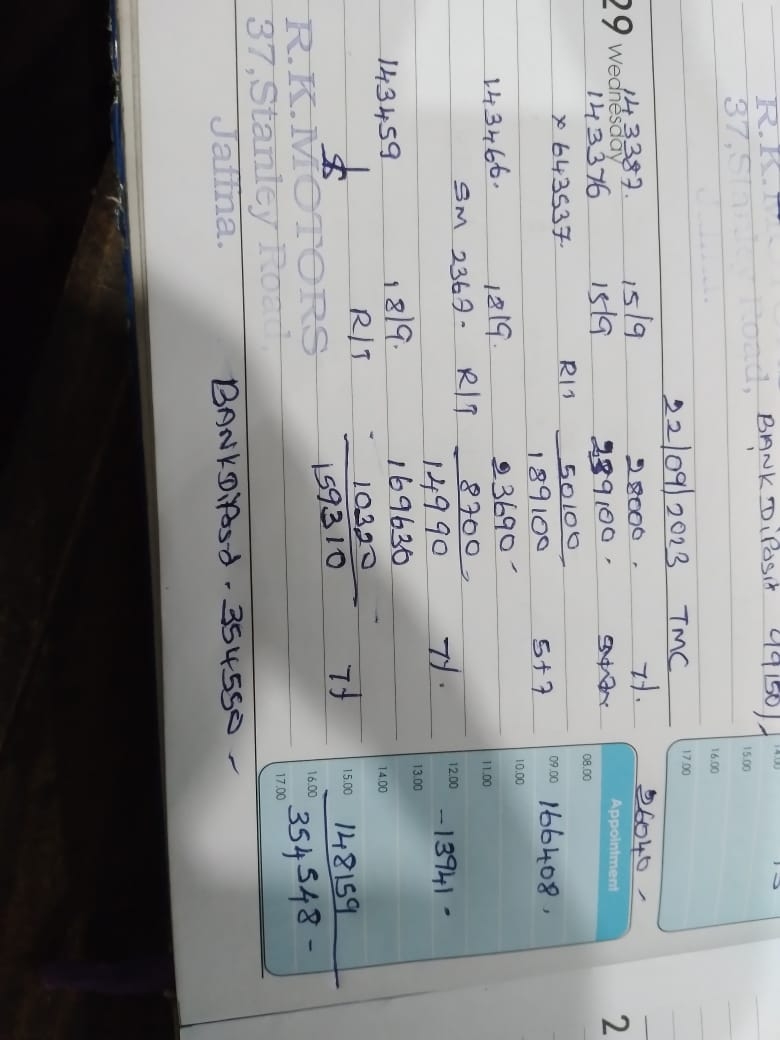 BANK DIPOSIT 99150/-
R.K.M
37,Stanley Road,
Jaffna.
14.00
15.00
16.00
17.00
22/09/2023 TMC
29 Wednesday
143387. 15/9 28000. 7%. 26040-
143376 15/9 239100.
Appointment
08.00
x 643537. R/T 50100
189100 5+7 166408.
09.00
10.00
143466. 18/9. 23690-
11.00
SM 2367. R/T 8700
14990 7%. -13941.
12.00
13.00
143459 18/9. 169630
14.00
R/T 10320
15.00
159310 7% 148159
16.00
354,548-
17.00
R.K.MOTORS
37,Stanley Road,
Jaffna.
BANK DIPOSIT. 354550-
2